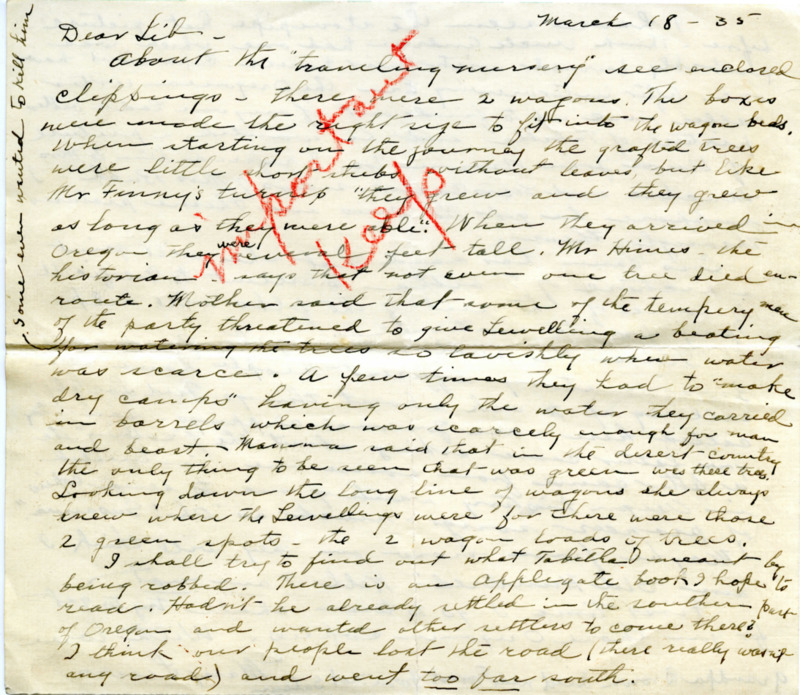 March 18 - 35
Dear Sib -
About the "traveling nursery" see enclosed
clippings - there were 2 wagons. The boxes
were made the right size to fit into the wagon beds.
When starting on the journey the grafted trees
were little short stubs without leaves, but like
Mr Finny's turnip "they grew and they grew
as long as they were able". When they arrived in
Oregon they were several feet tall. Mr Himes - the
historian - says that not even one tree died en-
route. Mother said that some of the tempery men
of the party threatened to give Lewelling a beating
for watering the trees so lavishly when water
was scarce. A few times they had to "make
dry camps" having only the water they carried
in barrels which was scarcely enough for man
and beast. Mamma said that in the desert country
the only thing to be seen that was green was these trees.
Looking down the long line of wagons she always
knew where the Lewellings were for there were those
2 green spots - the 2 wagon loads of trees.
I shall try to find out what Tabitha meant by
being robbed. There is an Applegate book I hope to
read. Hadn't he already settled in the southern part
of Oregon and wanted other settlers to come there?
I think our people lost the road (there really wasn't
any road) and went too far south.
(Some even wanted to kill him
important
Keep